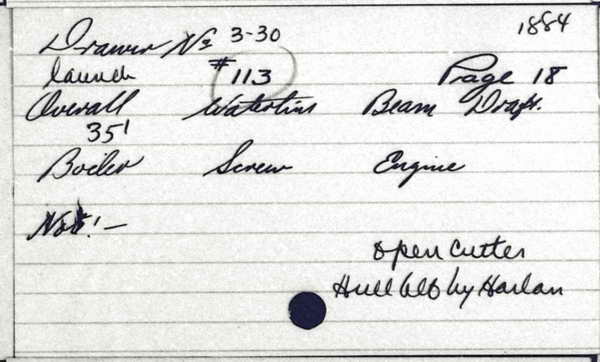 1884
Drawer No 3-30
launch #113 Page 18
Overall Waterline Beam Draft.
35'
Boiler Screw Engine
Not! —
open Cutter
Hull blt by Harlan